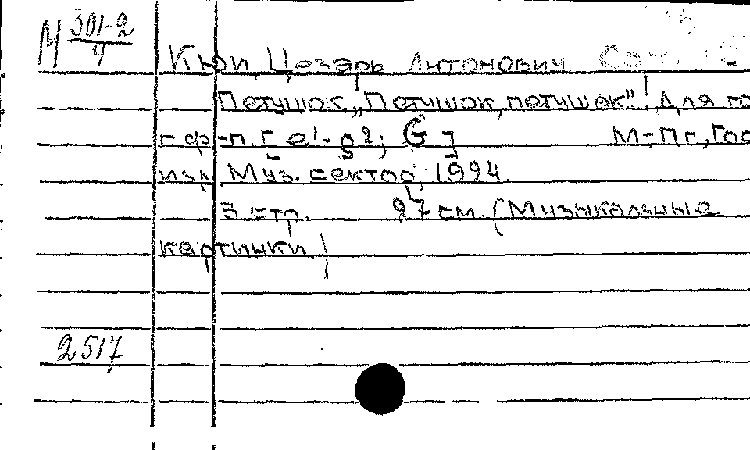 М 301-2
4
Кюи, Цезарь Антонович
Петушок. „Петушок, петушок“! Для го
с ф-п. [ e¹- g²; G ] М-Пг, Гос
изд. Муз. сектор, 1924.
3 стр. 27 см. (Музыкальные
картинки)
2517